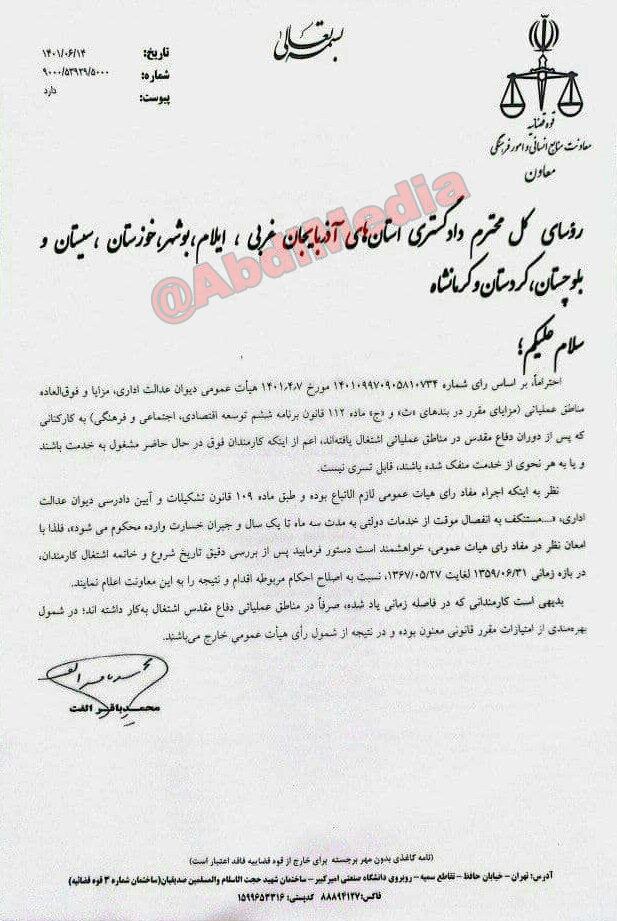 بسمه تعالی
تاریخ: ۱۴۰۱/۰۶/۱۴
شماره: ۹۰۰۰/۵۳۹۳۹/۵۰۰۰
پیوست: دارد
قوه قضائیه
معاونت منابع انسانی و امور فرهنگی
معاون
@AbdiMedia
رؤسای کل محترم دادگستری استان‌های آذربایجان غربی ، ایلام،بوشهر،خوزستان ،سیستان و
بلوچستان،کردستان و کرمانشاه
سلام علیکم؛
احتراماً، بر اساس رای شماره ۱۴۰۱۰۹۹۷۰۹۰۵۸۱۰۷۳۴ مورخ ۱۴۰۱،۴،۷ هیأت عمومی دیوان عدالت اداری، مزایا و فوق‌العاده
مناطق عملیاتی (مزایای مقرر در بندهای «ث» و «ج» ماده ۱۱۲ قانون برنامه ششم توسعه اقتصادی، اجتماعی و فرهنگی) به کارکنانی
که پس از دوران دفاع مقدس در مناطق عملیاتی اشتغال یافته‌اند، اعم از اینکه کارمندان فوق در حال حاضر مشغول به خدمت باشند
و یا به هر نحوی از خدمت منفک شده باشند، قابل تسری نیست.
نظر به اینکه اجراء مفاد رای هیات عمومی لازم الاتباع بوده و طبق ماده ۱۰۹ قانون تشکیلات و آیین دادرسی دیوان عدالت
اداری، «...مستنکف به انفصال موقت از خدمات دولتی به مدت سه ماه تا یک سال و جبران خسارت وارده محکوم می شود»، فلذا با
امعان نظر در مفاد رای هیات عمومی، خواهشمند است دستور فرمایید پس از بررسی دقیق تاریخ شروع و خاتمه اشتغال کارمندان،
در بازه زمانی ۱۳۵۹/۰۶/۳۱ لغایت ۱۳۶۷/۰۵/۲۷، نسبت به اصلاح احکام مربوطه اقدام و نتیجه را به این معاونت اعلام نمایند.
بدیهی است کارمندانی که در فاصله زمانی یاد شده، صرفاً در مناطق عملیاتی دفاع مقدس اشتغال به‌کار داشته اند؛ در شمول
بهره‌مندی از امتیازات مقرر قانونی معنون بوده و در نتیجه از شمول رأی هیأت عمومی خارج می‌باشند.
محمدباقر الفت
(نامه کاغذی بدون مهر برجسته برای خارج از قوه قضاییه فاقد اعتبار است)
آدرس: تهران - خیابان حافظ - تقاطع سمیه - روبروی دانشگاه صنعتی امیرکبیر - ساختمان شهید حجت الاسلام والمسلمین صدیقیان(ساختمان شماره ۳ قوه قضائیه)
فاکس: ۸۸۸۹۴۱۲۷ کدپستی: ۱۵۹۹۶۵۳۳۱۶